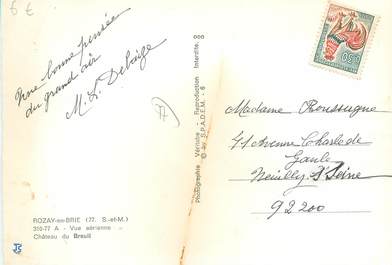 6 €
Une bonne pensée
du grand air
M. L.
77
ROZAY-en-BRIE (77. S.-et-M.)
310-77 A - Vue aérienne
Château du Breuil
Photographie Véritable - Reproduction Interdite.
© by S.P.A.D.E.M. - 6
000
0,30
Madame
41 Avenue Charles de
Gaule
Neuilly S/ Seine
92200